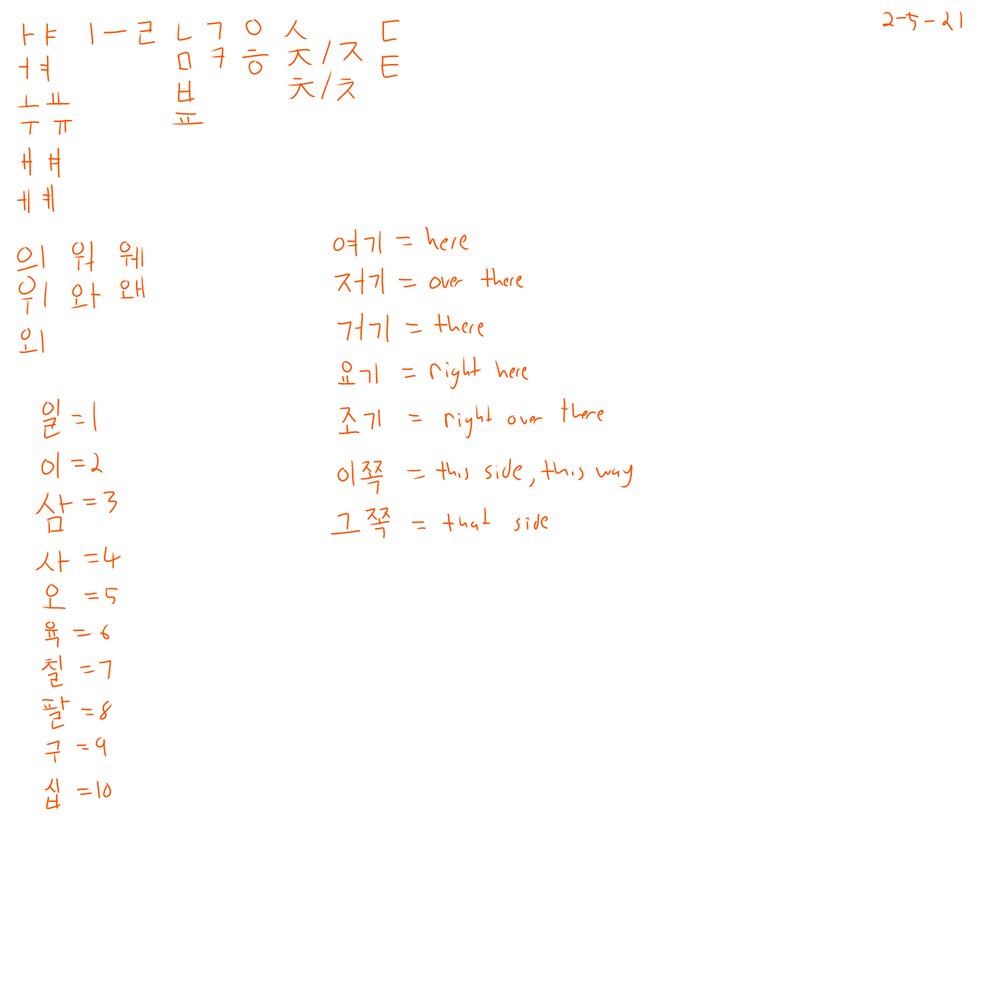 ㅏㅑ ㅣㅡㄹ ㄴ ㄱ ㅇ ㅅ ㄷ 2-5-21
ㅓㅕ ㅁ ㅋ ㅎ ㅈ/ㅈ ㅌ
ㅗㅛ ㅂ ㅊ/ㅊ
ㅜㅠ ㅍ
ㅐㅒ
ㅔㅖ
의 워 웨
위 와 왜
외
일 =1
이 =2
삼 =3
사 =4
오 =5
육 =6
칠 =7
팔 =8
구 =9
십 =10
여기 = here
저기 = over there
거기 = there
요기 = right here
조기 = right over there
이쪽 = this side, this way
그쪽 = that side